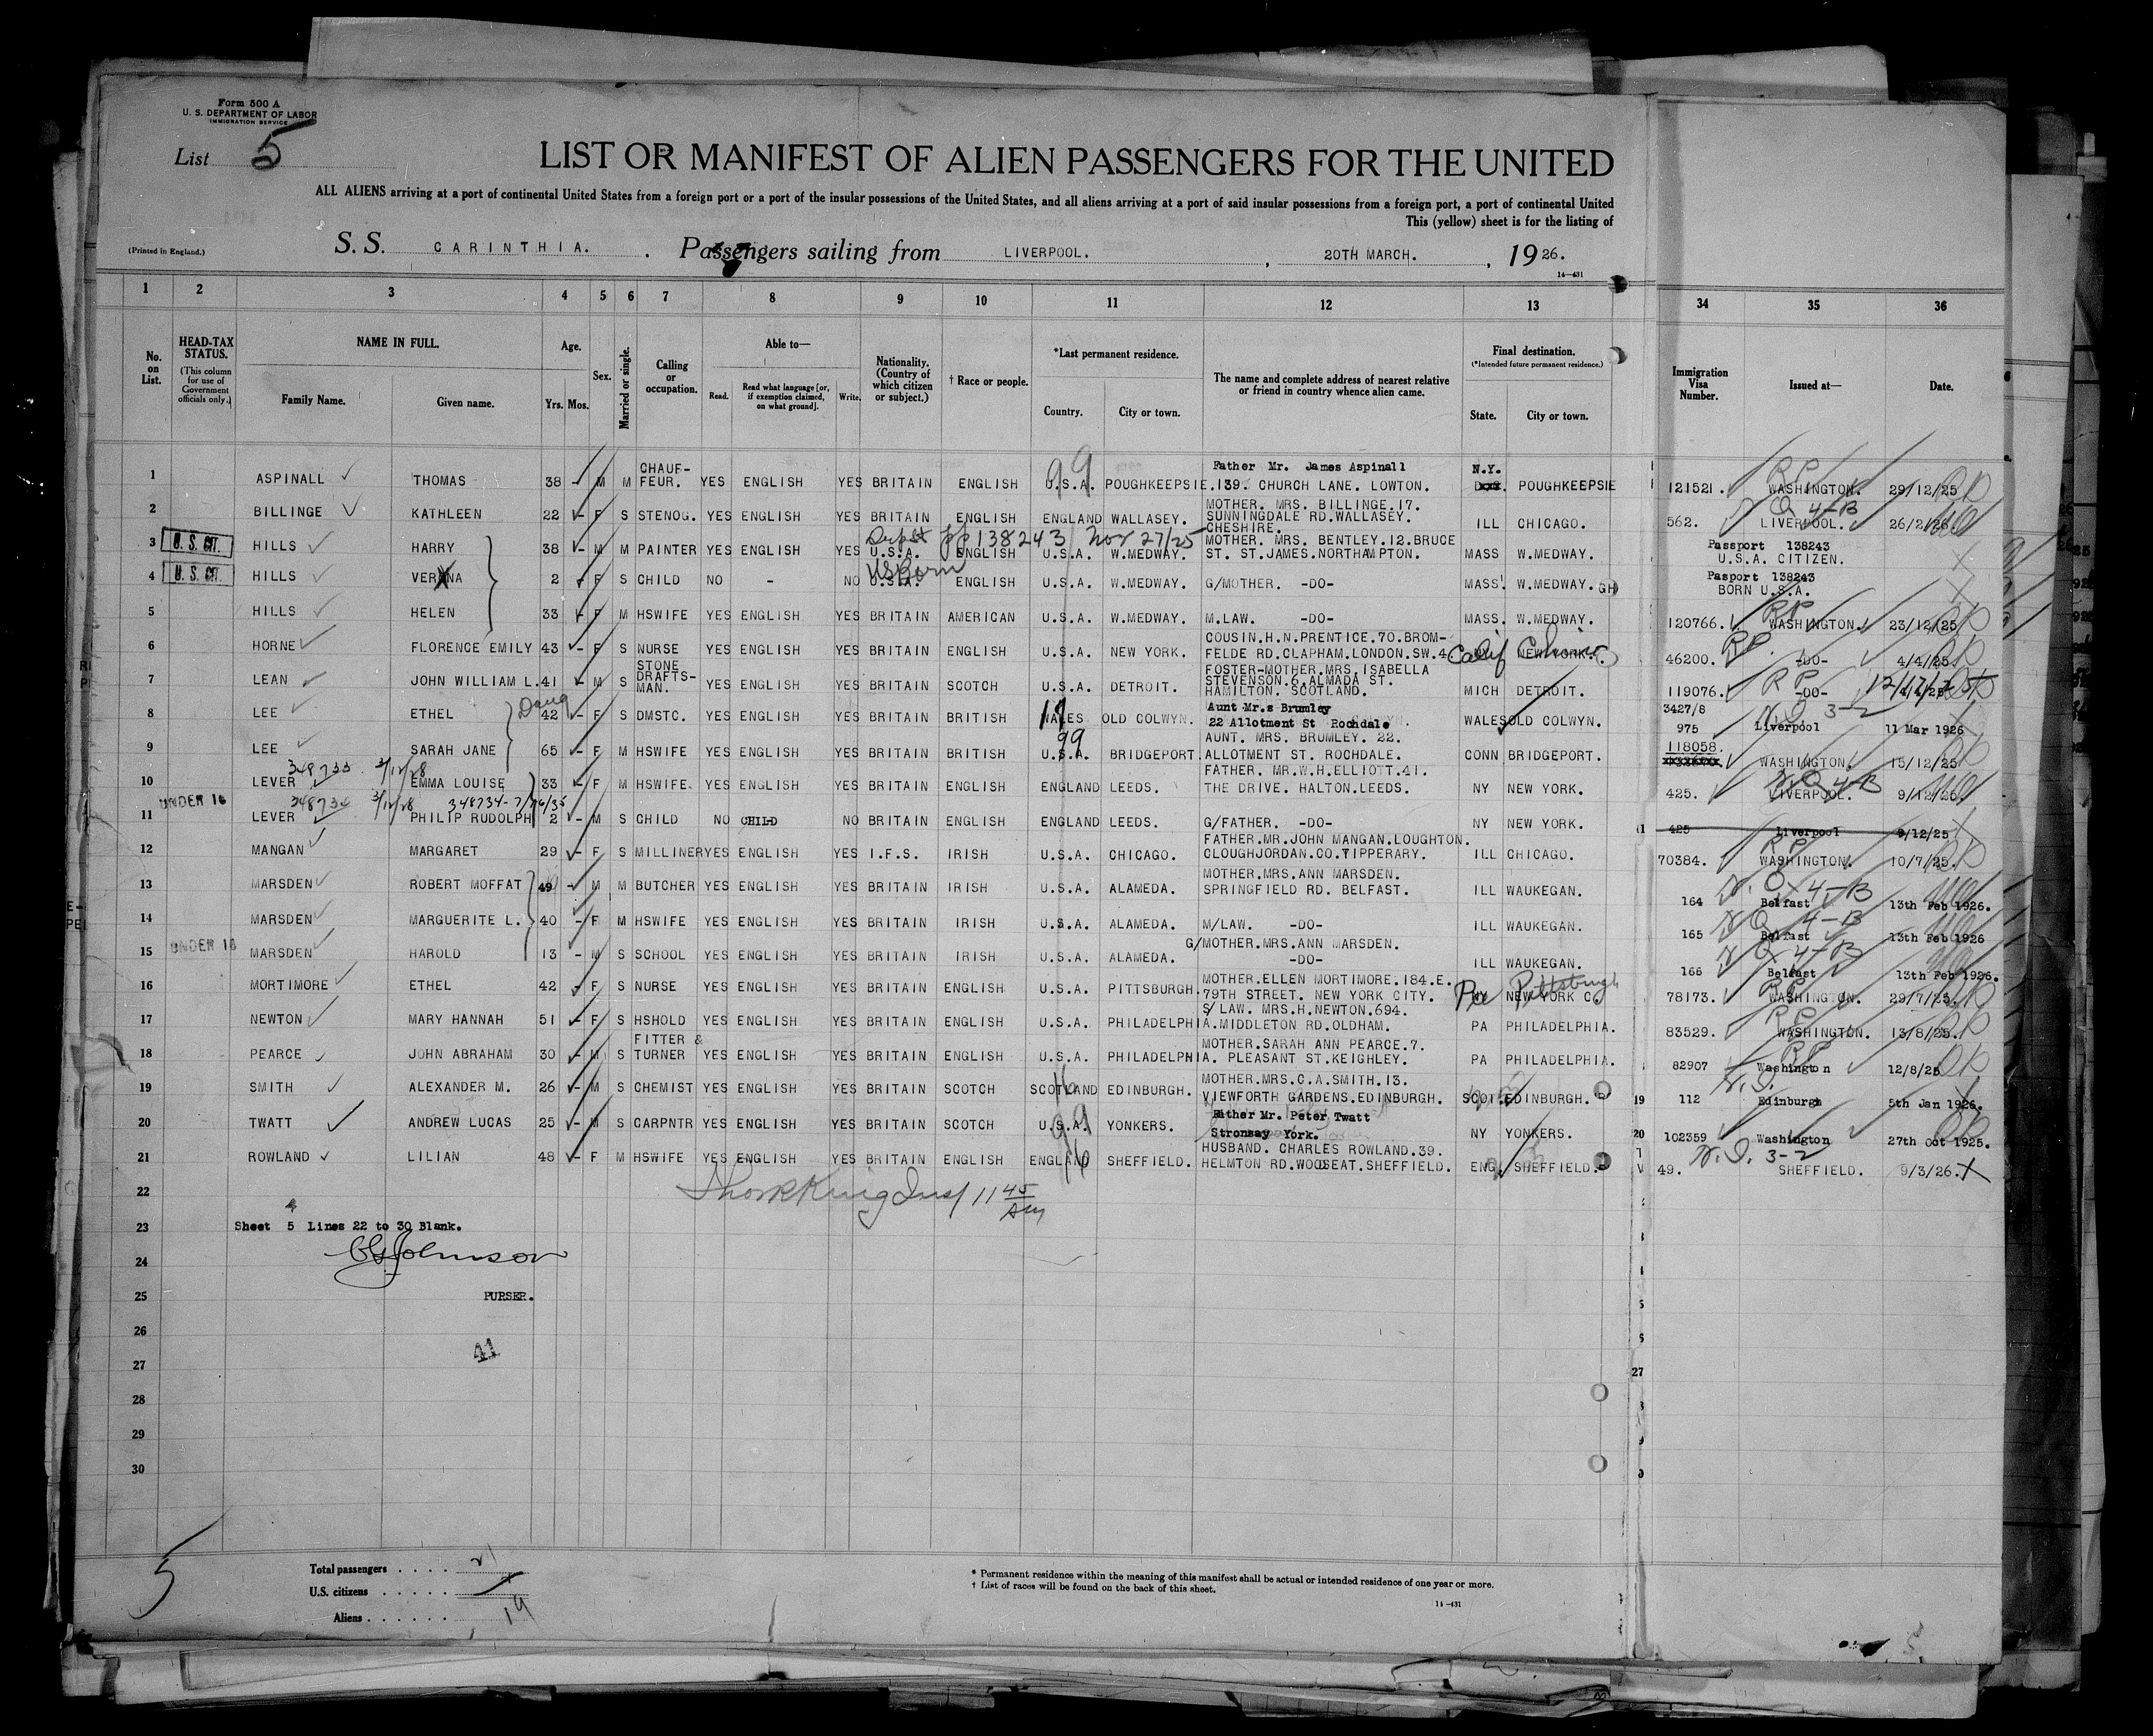 Form 500 A
U. S. DEPARTMENT OF LABOR
IMMIGRATION SERVICE
List 5
LIST OR MANIFEST OF ALIEN PASSENGERS FOR THE UNITED
ALL ALIENS arriving at a port of continental United States from a foreign port or a port of the insular possessions of the United States, and all aliens arriving at a port of said insular possessions from a foreign port, a port of continental United
This (yellow) sheet is for the listing of
(Printed in England.)
S. S. CARINTHIA. . Passengers sailing from LIVERPOOL. , 20TH MARCH. , 19 26.
14—431
1 2 3 4 5 6 7 8 9 10 11 12 13 34 35 36
No. on List.
HEAD-TAX STATUS.
(This column for use of Government officials only.)
NAME IN FULL.
Family Name. Given name.
Age.
Yrs. Mos.
Sex.
Married or single.
Calling or occupation.
Able to—
Read. Read what language [or, if exemption claimed, on what ground]. Write.
Nationality. (Country of which citizen or subject.)
† Race or people.
*Last permanent residence.
Country. City or town.
The name and complete address of nearest relative or friend in country whence alien came.
Final destination.
(*Intended future permanent residence.)
State. City or town.
Immigration Visa Number.
Issued at—
Date.
CHAUF- 99 Father Mr. James Aspinall N.Y. RP
1 ASPINALL THOMAS 38 - M M FEUR. YES ENGLISH YES BRITAIN ENGLISH U.S.A. POUGHKEEPSIE. 139. CHURCH LANE. LOWTON. POUGHKEEPSIE 121521. WASHINGTON. 29/12/25
MOTHER. MRS. BILLINGE. 17.
2 BILLINGE KATHLEEN 22 - F S STENOG. YES ENGLISH YES BRITAIN ENGLISH ENGLAND WALLASEY. SUNNINGDALE RD.WALLASEY. CHESHIRE. ILL CHICAGO. 562. LIVERPOOL. 26/2/26. Q 4-B
pp 138243 Nov 27/25 MOTHER. MRS. BENTLEY.12.BRUCE Passport 138243
3 U.S. CIT. HILLS HARRY 38 - M M PAINTER YES ENGLISH YES U.S.A. ENGLISH U.S.A. W.MEDWAY. ST. ST.JAMES.NORTHAMPTON. MASS W.MEDWAY. U.S.A. CITIZEN.
US Born Pasport 138243
4 U.S. CIT. HILLS VERNA 2 - F S CHILD NO - NO U.S.A. ENGLISH U.S.A. W.MEDWAY. G/MOTHER. -DO- MASS. W.MEDWAY. BORN U.S.A.
5 HILLS HELEN 33 - F M HSWIFE YES ENGLISH YES BRITAIN AMERICAN U.S.A. W.MEDWAY. M.LAW. -DO- MASS. W.MEDWAY. 120766. WASHINGTON. 23/12/25 RP
COUSIN.H.N.PRENTICE.70.BROM-
6 HORNE FLORENCE EMILY 43 - F S NURSE YES ENGLISH YES BRITAIN ENGLISH U.S.A. NEW YORK. FELDE RD.CLAPHAM.LONDON.SW.4 Calif Chino NEW YORK. 46200. -DO- 4/4/25 RP
STONE DRAFTS- FOSTER-MOTHER.MRS.ISABELLA STEVENSON.6.ALMADA ST.
7 LEAN JOHN WILLIAM L. 41 - M S MAN. YES ENGLISH YES BRITAIN SCOTCH U.S.A. DETROIT. HAMILTON. SCOTLAND. MICH DETROIT. 119076. -DO- 4/4/25 12/17/25 RP
Daug Aunt Mr.s Brumley 3427/8
8 LEE ETHEL 42 - F S DMSTC. YES ENGLISH YES BRITAIN BRITISH WALES OLD COLWYN. 22 Allotment St Rochdale WALES OLD COLWYN. 975 Liverpool 11 Mar 1926 3-2
99 AUNT. MRS. BRUMLEY. 22. 118058.
9 LEE SARAH JANE 65 - F M HSWIFE YES ENGLISH YES BRITAIN BRITISH U.S.A. BRIDGEPORT. ALLOTMENT ST. ROCHDALE. CONN BRIDGEPORT. WASHINGTON. 15/12/25
348733 3/12/28 FATHER. MR.W.H.ELLIOTT.41.
10 LEVER EMMA LOUISE 33 - F M HSWIFE. YES ENGLISH YES BRITAIN ENGLISH ENGLAND LEEDS. THE DRIVE. HALTON.LEEDS. NY NEW YORK. 425. LIVERPOOL. 9/12/25. Q 4-B
UNDER 16 348734 3/12/28 348734-
11 LEVER PHILIP RUDOLPH 2 - M S CHILD NO CHILD NO BRITAIN ENGLISH ENGLAND LEEDS. G/FATHER. -DO- NY NEW YORK. 425 Liverpool 9/12/25
FATHER.MR.JOHN MANGAN.LOUGHTON.
12 MANGAN MARGARET 29 - F S MILLINER YES ENGLISH YES I.F.S. IRISH U.S.A. CHICAGO. CLOUGHJORDAN.CO.TIPPERARY. ILL CHICAGO. 70384. WASHINGTON. 10/7/25. RP
MOTHER.MRS.ANN MARSDEN.
13 MARSDEN ROBERT MOFFAT 49 - M M BUTCHER YES ENGLISH YES BRITAIN IRISH U.S.A. ALAMEDA. SPRINGFIELD RD. BELFAST. ILL WAUKEGAN. 164 Belfast 13th Feb 1926. Q 4-B
14 MARSDEN MARGUERITE L. 40 - F M HSWIFE YES ENGLISH YES BRITAIN IRISH U.S.A. ALAMEDA. M/LAW. -DO- ILL WAUKEGAN. 165 Belfast 13th Feb 1926 Q 4-B
G/MOTHER.MRS.ANN MARSDEN.
15 UNDER 16 MARSDEN HAROLD 13 - M S SCHOOL YES ENGLISH YES BRITAIN IRISH U.S.A. ALAMEDA. -DO- ILL WAUKEGAN. 166 Belfast 13th Feb 1926. Q 4-B
MOTHER.ELLEN MORTIMORE.184.E.
16 MORTIMORE ETHEL 42 - F S NURSE YES ENGLISH YES BRITAIN ENGLISH U.S.A. PITTSBURGH. 79TH STREET. NEW YORK CITY. Pa Pittsburgh NY NEW YORK C. 78173. WASHINGTON. 29/7/25. RP
S/LAW. MRS.H.NEWTON.694.
17 NEWTON MARY HANNAH 51 - F S HSHOLD YES ENGLISH YES BRITAIN ENGLISH U.S.A. PHILADELPHIA. MIDDLETON RD.OLDHAM. PA PHILADELPHIA. 83529. WASHINGTON. 13/8/25. RP
FITTER & MOTHER.SARAH ANN PEARCE.7.
18 PEARCE JOHN ABRAHAM 30 - M S TURNER YES ENGLISH YES BRITAIN ENGLISH U.S.A. PHILADELPHIA. PLEASANT ST.KEIGHLEY. PA PHILADELPHIA. 82907 Washington 12/8/25 RP
MOTHER.MRS.C.A.SMITH.13.
19 SMITH ALEXANDER M. 26 - M S CHEMIST YES ENGLISH YES BRITAIN SCOTCH SCOTLAND EDINBURGH. VIEWFORTH GARDENS.EDINBURGH. SCOT. EDINBURGH. 19 112 Edinburgh 5th Jan 1926.
99 Father Mr. Peter Twatt
20 TWATT ANDREW LUCAS 25 - M S CARPNTR YES ENGLISH YES BRITAIN SCOTCH U.S.A. YONKERS. Stronsay York. NY YONKERS. 20 102359 Washington 27th Oct 1925.
HUSBAND. CHARLES ROWLAND.39.
21 ROWLAND LILIAN 48 - F M HSWIFE YES ENGLISH YES BRITAIN ENGLISH ENGLAND SHEFFIELD. HELMTON RD.WOODSEAT.SHEFFIELD. ENG. SHEFFIELD. 49. SHEFFIELD. 9/3/26. 3-2
22 Insp 11 45 AM
23 Sheet 5 Lines 22 to 30 Blank.
24 Johnson
25 PURSER.
26
41
27 27
28
29
30
5
Total passengers . . . . 21
U.S. citizens . . . . .
Aliens . . . . . . 19
* Permanent residence within the meaning of this manifest shall be actual or intended residence of one year or more.
† List of races will be found on the back of this sheet.
14—431
5.